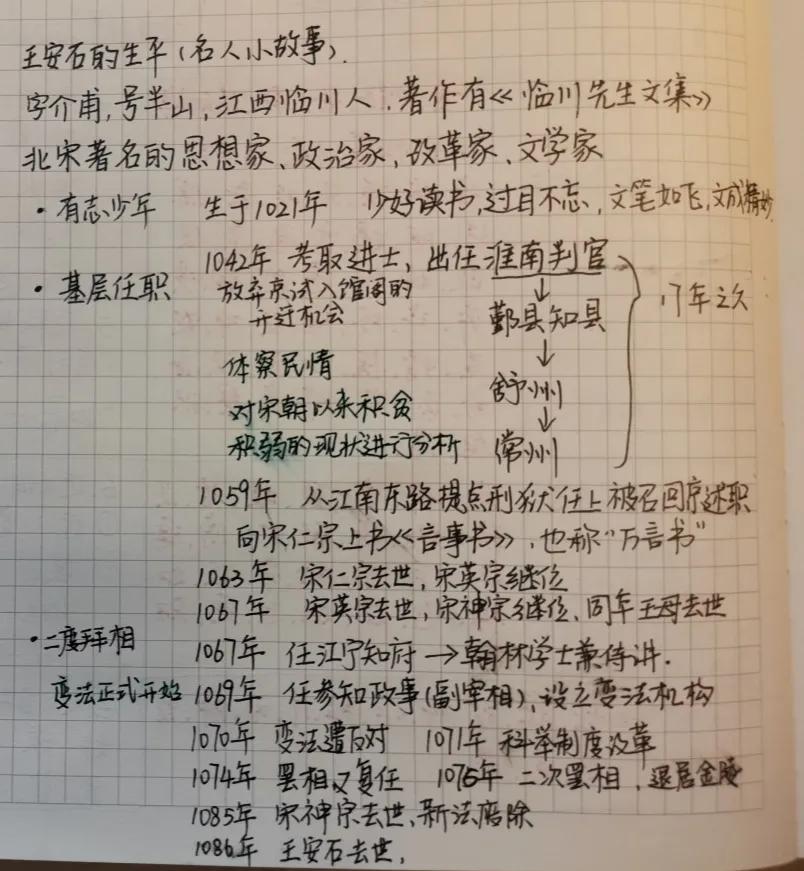 王安石的生平(名人小故事).
字介甫,号半山,江西临川人.著作有《临川先生文集》
北宋著名的思想家、政治家,改革家、文学家
·有志少年 生于1021年 少好读书,过目不忘,文笔如飞,文成精妙.
1042年 考取进士,出任淮南判官
·基层任职 放弃京试入馆阁的
升迁机会
↓
鄞县知县
17年之久
↓
体察民情
舒州
对宋朝以来积贫
↓
积弱的现状进行分析 常州
1059年 从江南东路提点刑狱任上被召回京述职
向宋仁宗上书《言事书》,也称"万言书"
1063年 宋仁宗去世,宋英宗继位
1067年 宋英宗去世,宋神宗继位、同年王母去世
·二度拜相
1067年 任江宁知府→翰林学士兼侍讲.
变法正式开始 1069年 任参知政事(副宰相),设立变法机构
1070年 变法遭反对 1071年 科举制度改革
1074年 罢相又复任 1075年 二次罢相,退居金陵
1085年 宋神宗去世、新法废除
1086年 王安石去世,